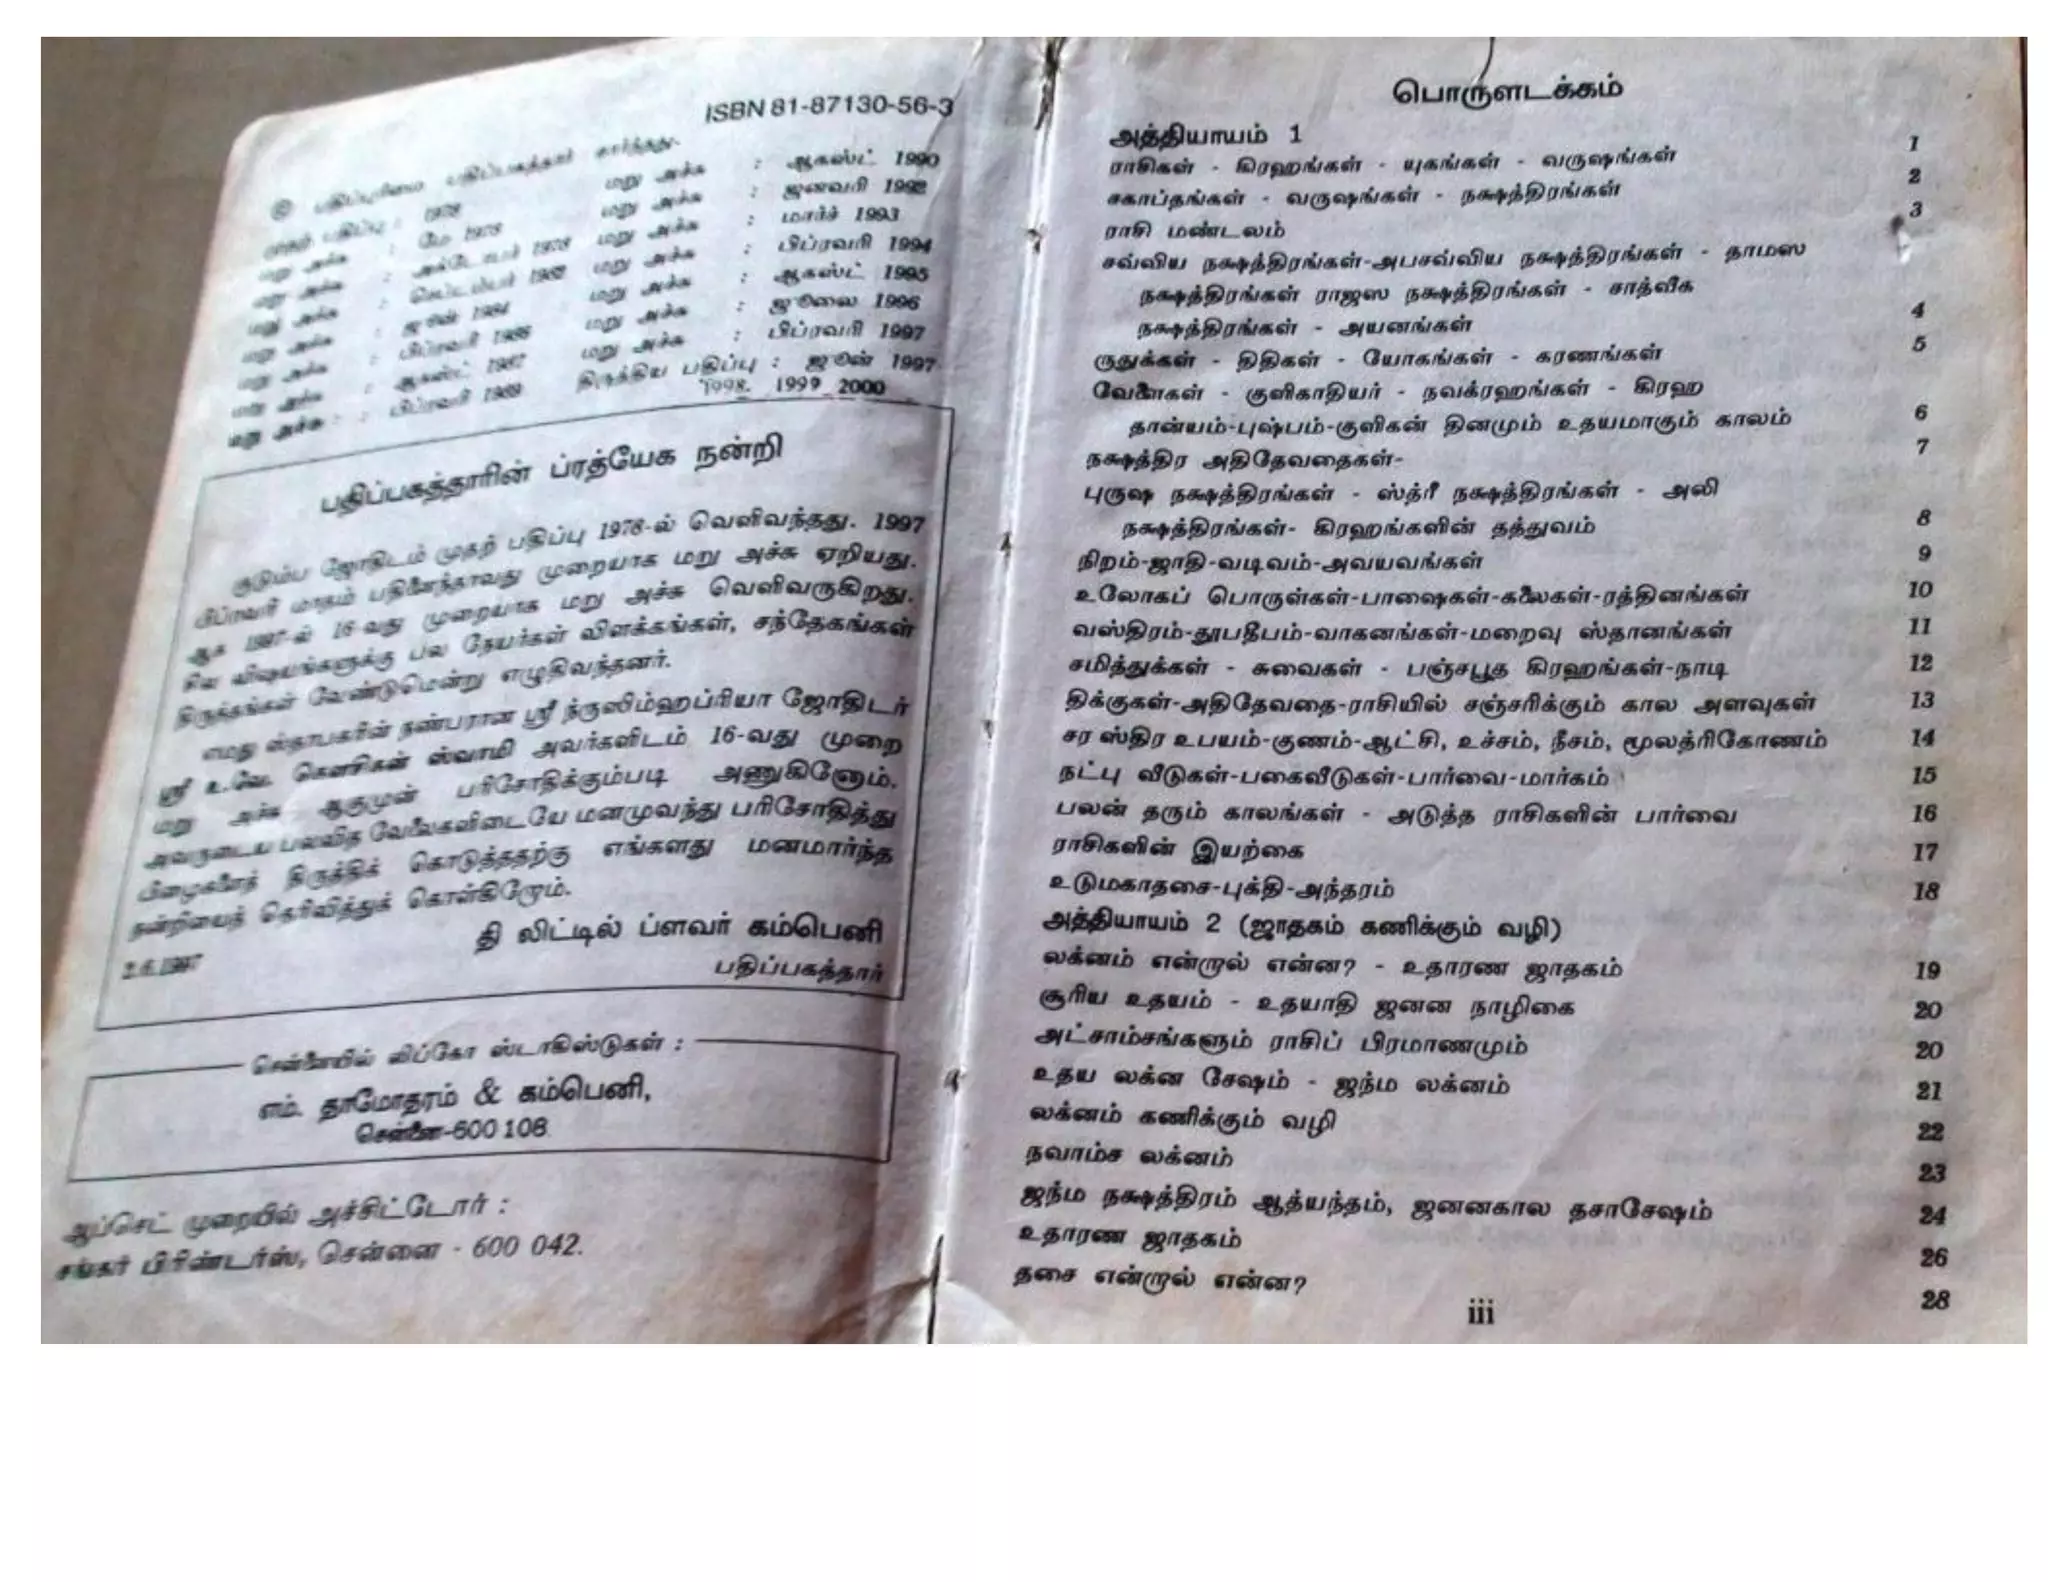 ISBN 81-87130-56-3
© பதிப்புரிமை பதிப்பகத்தார் சார்ந்தது.
முதற் பதிப்பு : 1978 மறு அச்சு : ஆகஸ்ட் 1990
மறு அச்சு : மே 1978 மறு அச்சு : ஜனவரி 1992
மறு அச்சு : அக்டோபர் 1978 மறு அச்சு : மார்ச் 1993
மறு அச்சு : செப்டம்பர் மறு அச்சு : பிப்ரவரி 1994
மறு அச்சு : ஜூன் 1984 மறு அச்சு : ஆகஸ்ட் 1995
மறு அச்சு : பிப்ரவரி 1986 மறு அச்சு : ஜூலை 1996
மறு அச்சு : ஆகஸ்ட் 1987 மறு அச்சு : பிப்ரவரி 1997
மறு அச்சு : பிப்ரவரி 1989 திருத்திய பதிப்பு : ஜூன் 1997
1998. 1999 2000
பதிப்பகத்தாரின் ப்ரத்யேக நன்றி
குடும்ப ஜோதிடம் முதற் பதிப்பு 1978-ல் வெளிவந்தது. 1997
பிப்ரவரி மாதம் பதினைந்தாவது முறையாக மறு அச்சு ஏறியது.
ஆக 1997-ல் 16-வது முறையாக மறு அச்சு வெளிவருகிறது.
சில விஷயங்களுக்கு பல நேயர்கள் விளக்கங்கள், சந்தேகங்கள்
திருத்தங்கள் வேண்டுமென்று எழுதிவந்தனர்.
எமது ஸ்தாபகரின் நண்பரான ஸ்ரீ ந்ருஸிம்ஹப்ரியா ஜோதிடர்
ஸ்ரீ உ.வே. கௌசிகன் ஸ்வாமி அவர்களிடம் 16-வது முறை
மறு அச்சு ஆகுமுன் பரிசோதிக்கும்படி அணுகினோம்.
அவருடைய பலவித வேலைகளிடையே மனமுவந்து பரிசோதித்து
பிழைகளைத் திருத்திக் கொடுத்ததற்கு எங்களது மனமார்ந்த
நன்றியைத் தெரிவித்துக் கொள்கிறோம்.
தி லிட்டில் ப்ளவர் கம்பெனி
2.6.1997 பதிப்பகத்தார்
சென்னையில் லிப்கோ ஸ்டாகிஸ்டுகள் :
எம். தாமோதரம் & கம்பெனி,
சென்னை-600 108
ஆப்செட் முறையில் அச்சிட்டோர் :
சங்கர் பிரிண்டர்ஸ், சென்னை - 600 042.
பொருளடக்கம்
அத்தியாயம் 1
ராசிகள் - கிரஹங்கள் - யுகங்கள் - வருஷங்கள் 1
சகாப்தங்கள் - வருஷங்கள் - நக்ஷத்திரங்கள் 2
ராசி மண்டலம் 3
சவ்விய நக்ஷத்திரங்கள்-அபசவ்விய நக்ஷத்திரங்கள் - தாமஸ
நக்ஷத்திரங்கள் ராஜஸ நக்ஷத்திரங்கள் - சாத்வீக
நக்ஷத்திரங்கள் - அயனங்கள் 4
ருதுக்கள் - திதிகள் - யோகங்கள் - கரணங்கள் 5
வேளைகள் - குளிகாதியர் - நவக்ரஹங்கள் - கிரஹ
தான்யம்-புஷ்பம்-குளிகன் தினமும் உதயமாகும் காலம் 6
நக்ஷத்திர அதிதேவதைகள்- 7
புருஷ நக்ஷத்திரங்கள் - ஸ்த்ரீ நக்ஷத்திரங்கள் - அலி
நக்ஷத்திரங்கள்- கிரஹங்களின் தத்துவம் 8
நிறம்-ஜாதி-வடிவம்-அவயவங்கள் 9
உலோகப் பொருள்கள்-பாஷைகள்-கலைகள்-ரத்தினங்கள் 10
வஸ்திரம்-தூபதீபம்-வாகனங்கள்-மறைவு ஸ்தானங்கள் 11
சமித்துக்கள் - சுவைகள் - பஞ்சபூத கிரஹங்கள்-நாடி 12
திக்குகள்-அதிதேவதை-ராசியில் சஞ்சரிக்கும் கால அளவுகள் 13
சர ஸ்திர உபயம்-குணம்-ஆட்சி, உச்சம், நீசம், மூலத்ரிகோணம் 14
நட்பு வீடுகள்-பகைவீடுகள்-பார்வை-மார்கம் 15
பலன் தரும் காலங்கள் - அடுத்த ராசிகளின் பார்வை 16
ராசிகளின் இயற்கை 17
உடுமகாதசை-புக்தி-அந்தரம் 18
அத்தியாயம் 2 (ஜாதகம் கணிக்கும் வழி)
லக்னம் என்றால் என்ன? - உதாரண ஜாதகம் 19
சூரிய உதயம் - உதயாதி ஜனன நாழிகை 20
அட்சாம்சங்களும் ராசிப் பிரமாணமும் 20
உதய லக்ன சேஷம் - ஜந்ம லக்னம் 21
லக்னம் கணிக்கும் வழி 22
நவாம்ச லக்னம் 23
ஜந்ம நக்ஷத்திரம் ஆத்யந்தம், ஜனனகால தசாசேஷம் 24
உதாரண ஜாதகம் 26
தசை என்றால் என்ன? 28
iii